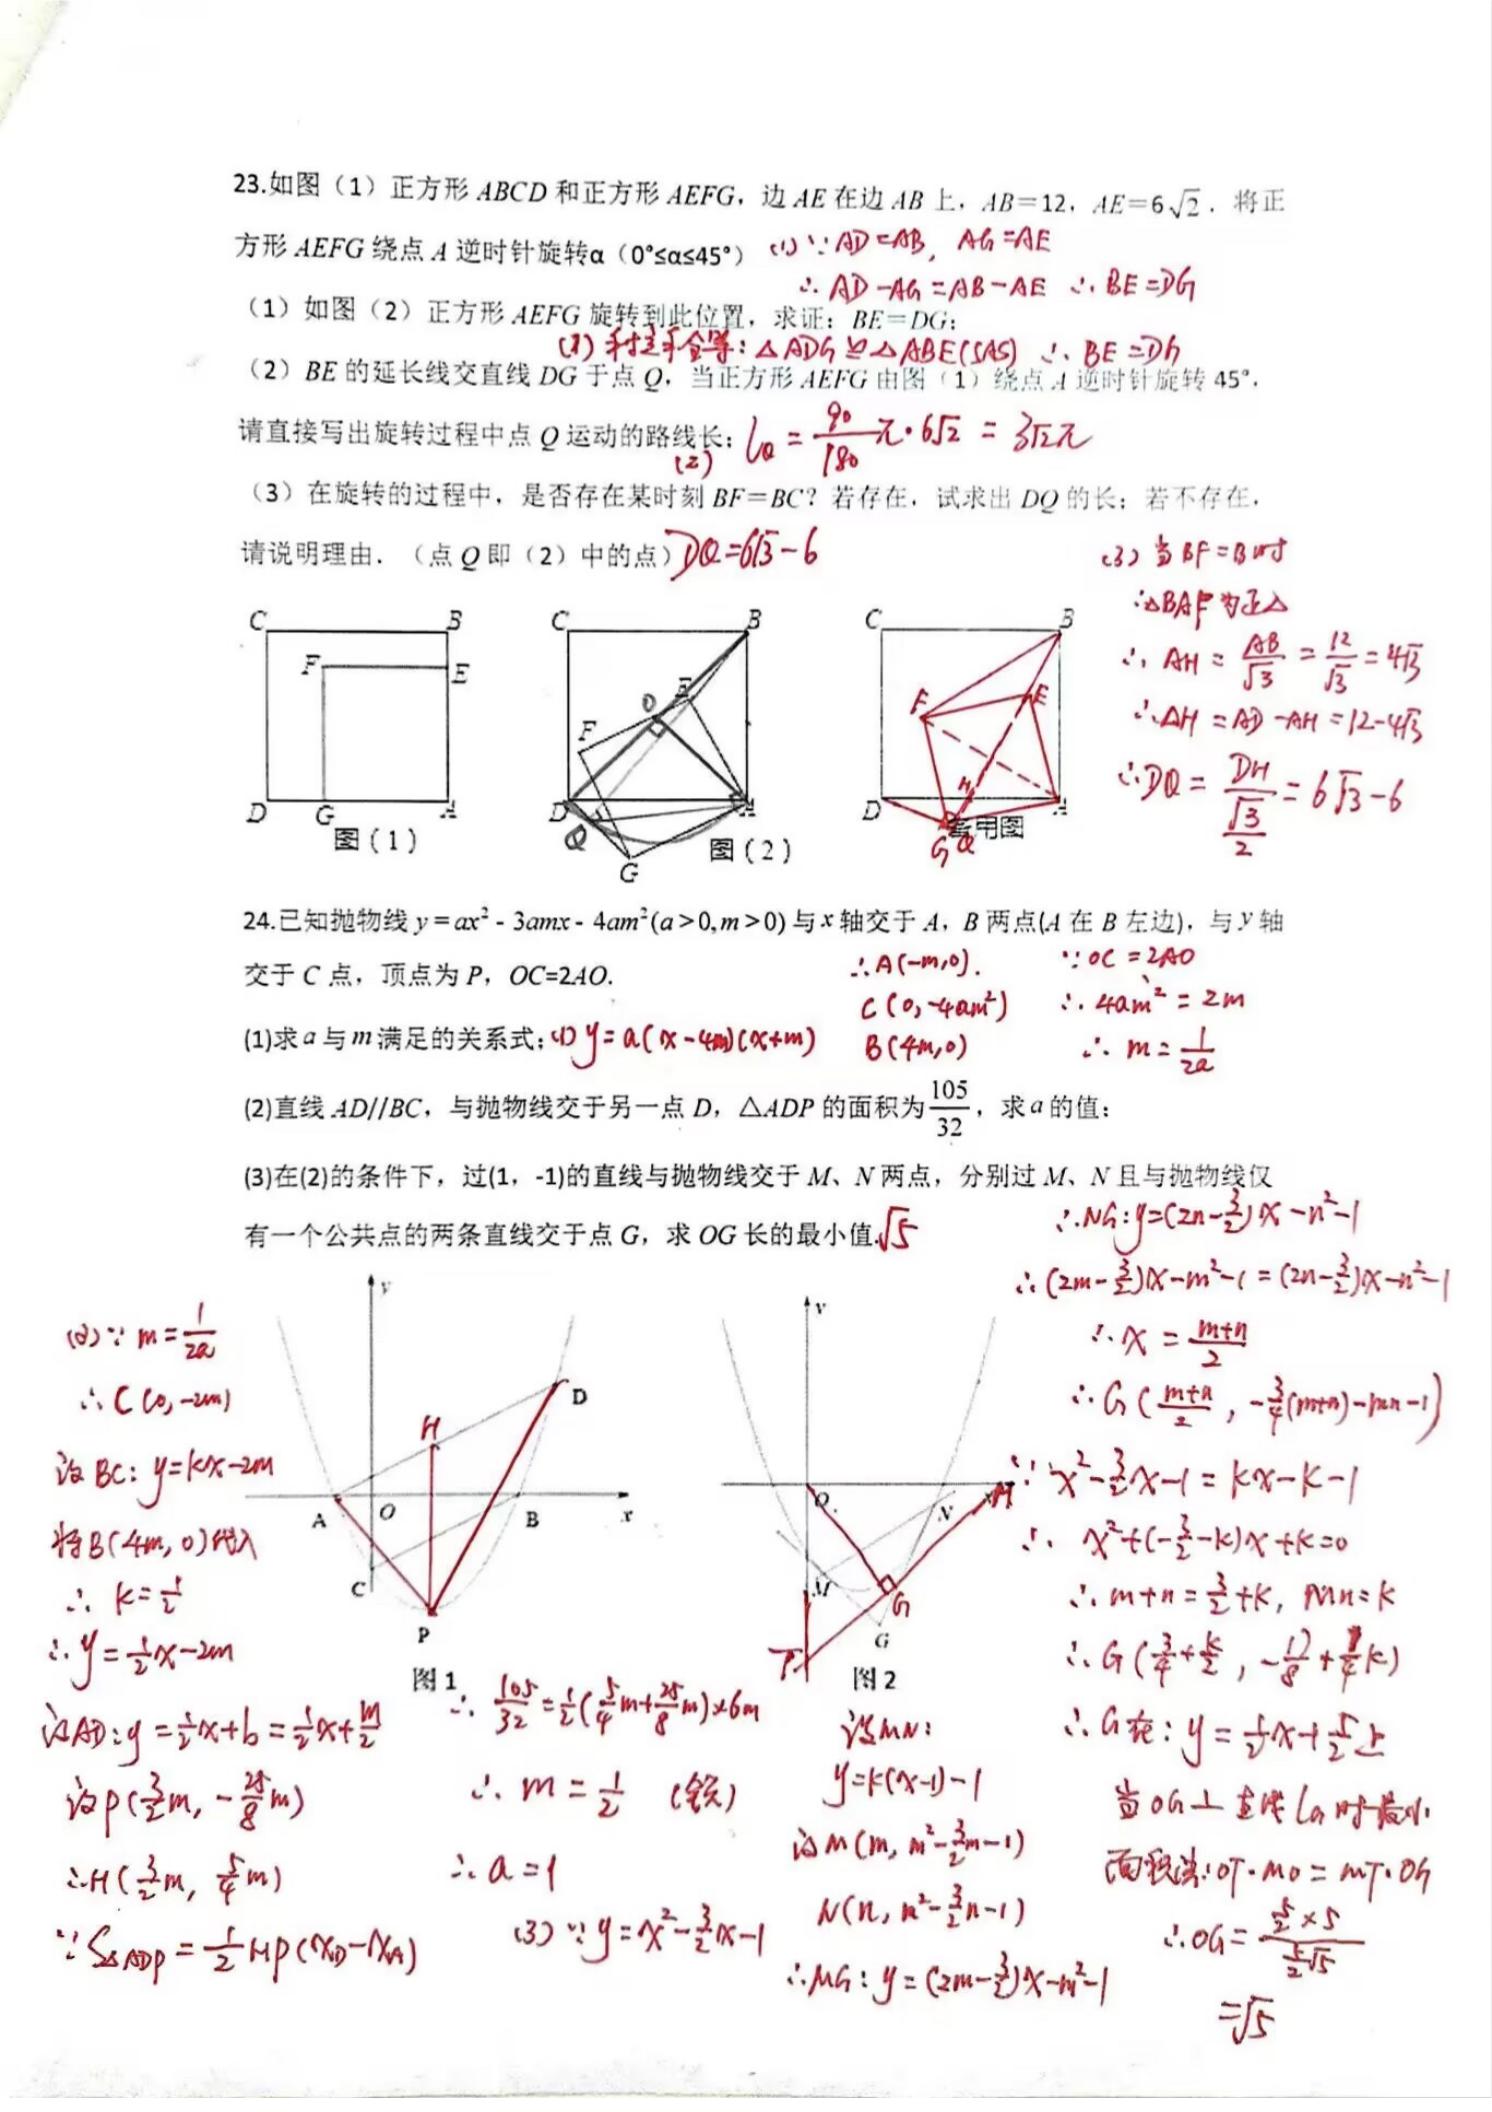 23.如图（1）正方形 ABCD 和正方形 AEFG，边 AE 在边 AB 上，AB＝12，AE＝6√2．将正
方形 AEFG 绕点 A 逆时针旋转α（0°≤α≤45°）
(1) ∵ AD=AB, AG=AE
∴ AD-AG=AB-AE ∴ BE=DG
（1）如图（2）正方形 AEFG 旋转到此位置，求证：BE＝DG；
全等：△ADG≌△ABE(SAS) ∴ BE=DG
（2）BE 的延长线交直线 DG 于点 Q，当正方形 AEFG 由图（1）绕点 A 逆时针旋转 45°，
请直接写出旋转过程中点 Q 运动的路线长；
(2) l_Q = 90/180 π·6√2 = 3√2π
（3）在旋转的过程中，是否存在某时刻 BF＝BC？若存在，试求出 DQ 的长；若不存在，
请说明理由．（点 Q 即（2）中的点）
DQ=6√3-6
(3) 当BF=B时
∴△BAF为正△
∴ AH = AB/√3 = 12/√3 = 4√3
∴ΔH = AD-AH = 12-4√3
∴DQ = DH/(√3/2) = 6√3-6
C B F E D G A
图（1）
C B O E F D A Q G
图（2）
C B F E H D A G Q
备用图
24.已知抛物线 y = ax² - 3amx - 4am² (a > 0, m > 0) 与 x 轴交于 A，B 两点(A 在 B 左边)，与 y 轴
交于 C 点，顶点为 P，OC=2AO.
∴A(-m,0).
C(0,-4am²)
B(4m,0)
∵OC=2AO
∴ 4am² = 2m
∴ m = 1/2a
(1)求 a 与 m 满足的关系式；
(1) y=a(x-4m)(x+m)
(2)直线 AD//BC，与抛物线交于另一点 D，△ADP 的面积为 105/32，求 a 的值；
(3)在(2)的条件下，过(1，-1)的直线与抛物线交于 M、N 两点，分别过 M、N 且与抛物线仅
有一个公共点的两条直线交于点 G，求 OG 长的最小值.
√5
y D H A O B x C P
图 1
y O N M M G G T
图 2
(2) ∵ m = 1/2a
∴ C(0,-2m)
设BC: y=kx-2m
将B(4m,0)代入
∴ k=1/2
∴ y=1/2x-2m
设AD: y=1/2x+b=1/2x+m/2
设P(3/2m, -25/8m)
∴H(3/2m, 5/4m)
∵ S△ADP = 1/2HP(x_D-x_A)
∴ 105/32 = 1/2(5/4m+25/8m)×6m
∴ m = 1/2
∴ a=1
(3) ∵ y=x²-3/2x-1
设MN:
y=k(x-1)-1
设M(m, m²-3/2m-1)
N(n, n²-3/2n-1)
∴MG: y=(2m-3/2)x-m²-1
∴NG: y=(2n-3/2)x-n²-1
∴(2m-3/2)x-m²-1=(2n-3/2)x-n²-1
∴x = (m+n)/2
∴G((m+n)/2, -3/4(m+n)-mn-1)
∵ x²-3/2x-1=kx-k-1
∴ x²+(-3/2-k)x+k=0
∴ m+n=3/2+k, mn=k
∴ G(3/4+k/2, -17/8+1/4k)
∴G在: y=1/2x+5/2上
当OG⊥直线l_G时最小
面积法: OT·MO=MT·OG
∴OG = (5/2×5)/(5/2√5)
=√5